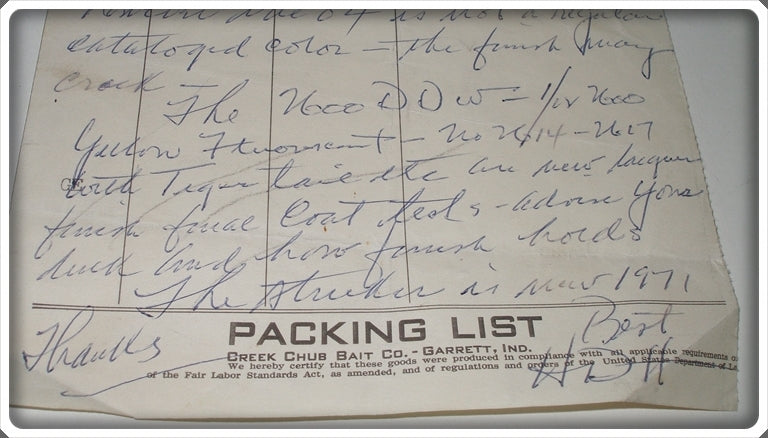 04 is not a regular
cataloged color — the finish may
crack —
The 2600 DDW —
Yellow Fluorescent — No 2614 - 2617
with Tiger tail etc are new lacquer
finish final coat tests - advise your
luck and how finish holds
The Striker is new 1971
Thanks
Best
HDH
PACKING LIST
CREEK CHUB BAIT CO. - GARRETT, IND.
We hereby certify that these goods were produced in compliance with all applicable requirements
of the Fair Labor Standards Act, as amended, and of regulations and orders of the United States Department of